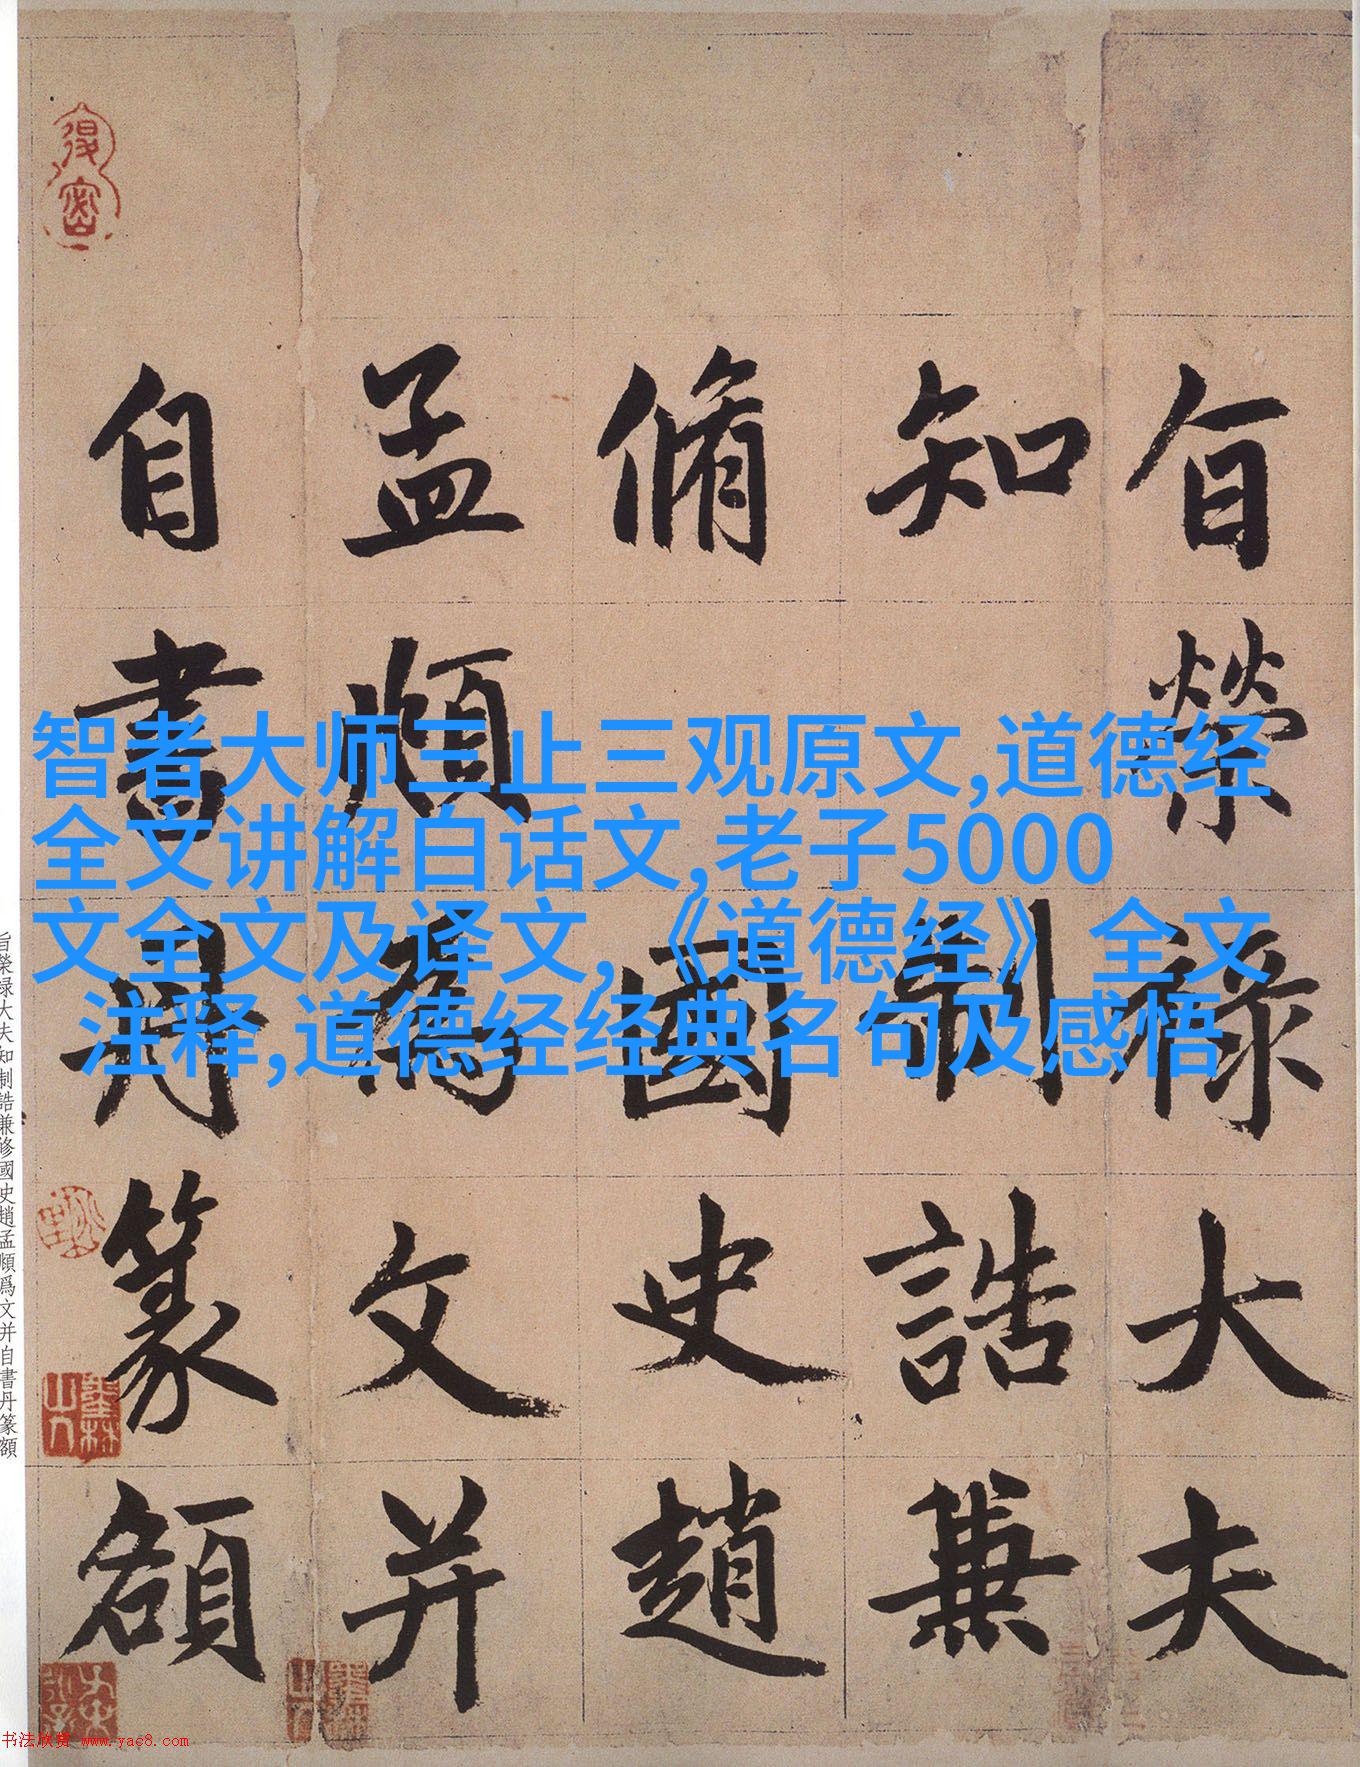 旨榮祿大夫
知制誥兼
脩國史趙
孟頫為文并
自書丹篆額
智者大师三止三观原文,道德经
全文讲解白话文,老子5000
文全文及译文,《道德经》全文
注释,道德经经典名句及感悟
旨榮禄大夫知制誥兼修國史趙孟頫爲文并自書丹篆額
书法欣赏 www.yac8.com